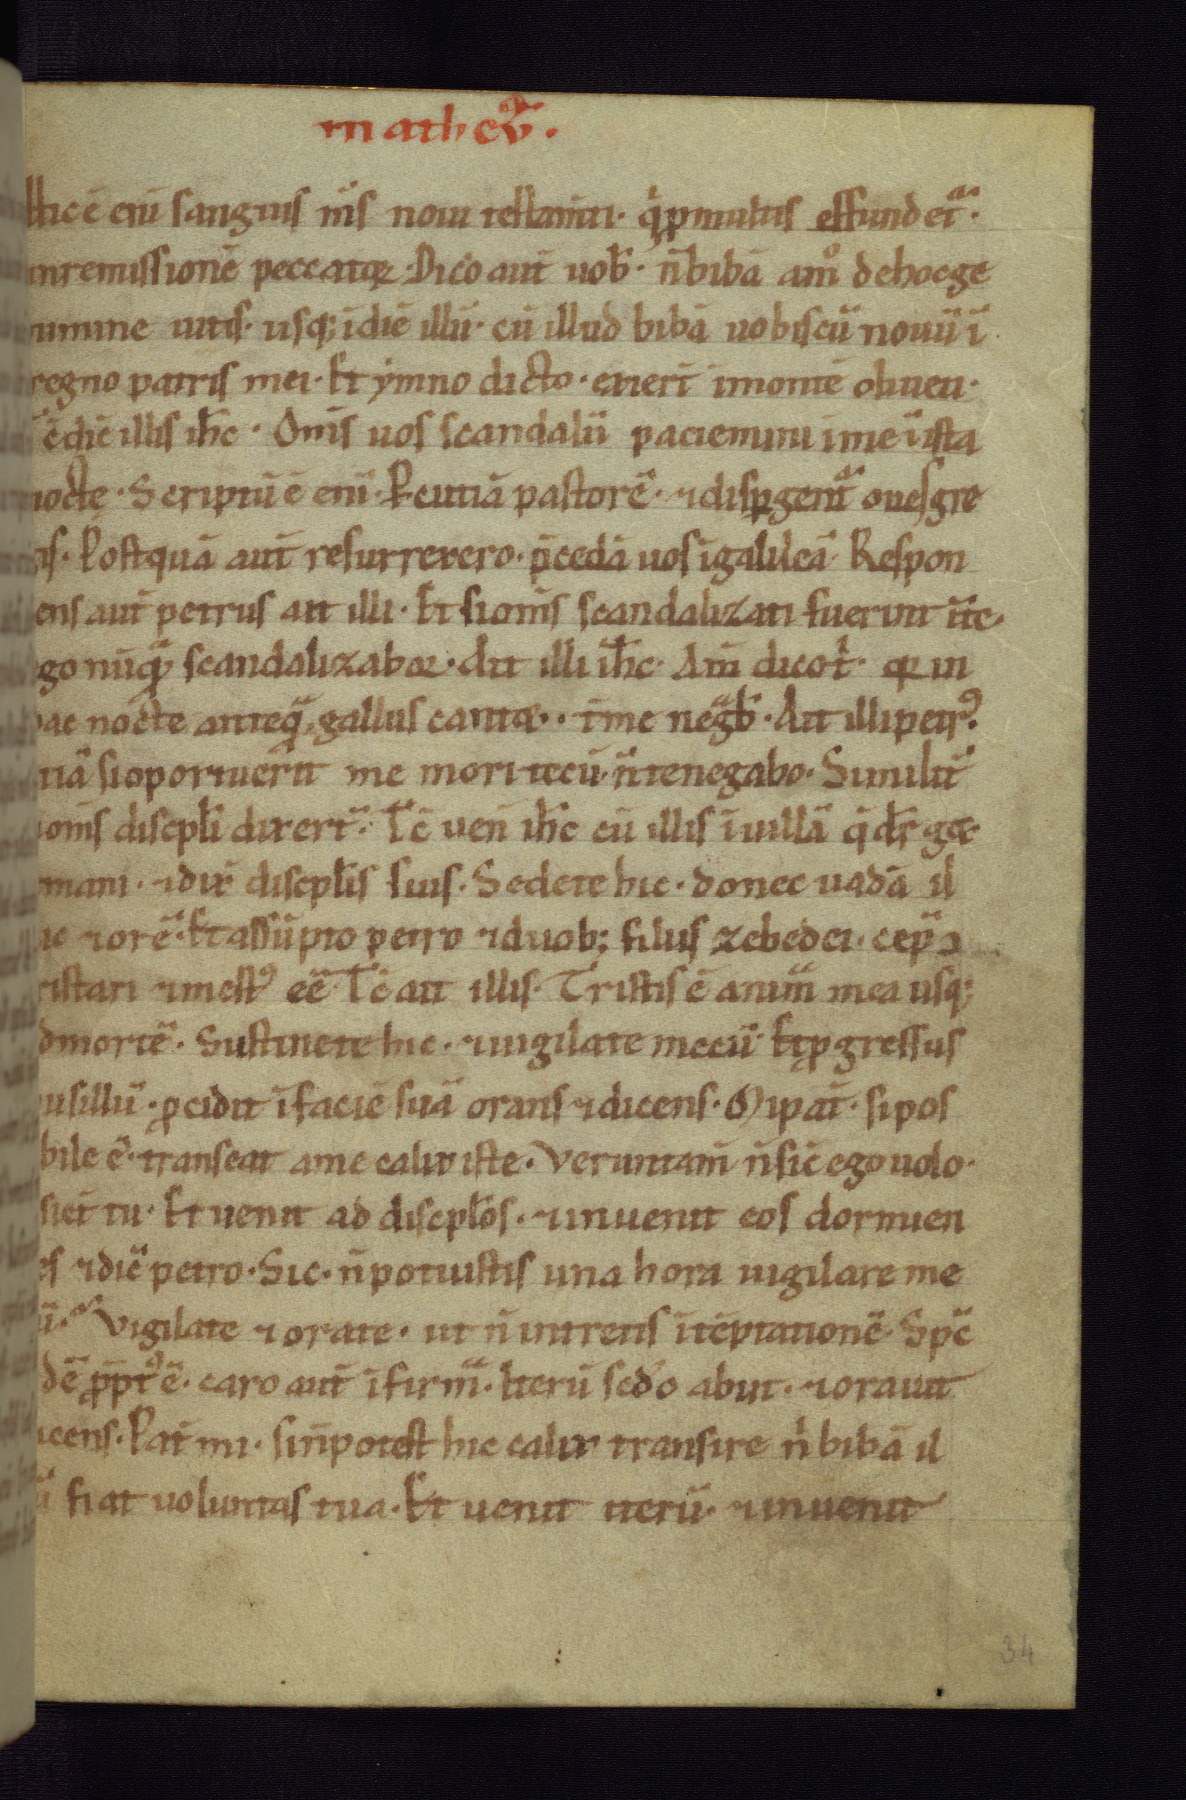 matheū.
hic ē eni sanguis m̄s noui testam̄ti· q̇ p multis effundet᷑·
in remissionē peccatoꝝ. Dico aut̄ uob̄· n̄ bibā am̊ de hoc ge
nimine uitis· usq; ī diē illū· cū illud bibā uobiscū nouū ī
regno patris mei· Et ymno dicto· exiert̄ ī montē oliueti·
T̄c dic̄ illis ih̄c· Om̄s uos scandalū paciemini ī me ī ista
nocte· Scriptū ē eni· Pcutiā pastorē· ⁊ dispgent᷑ oues gre
gis· Postquā aut̄ resurrexero· p̄cedā uos ī galileā· Respon
dens aut̄ petrus ait illi· Et si om̄s scandalizati fuerint ī te·
ego nūq̄ scandalizaboꝛ· Ait illi ih̄c· Am̄ dico t̄· qꝛ in
hac nocte anteq̄ gallus cantæ· t̄ me negab̄· Ait illi petrꝰ·
&iā si oportuerit me mori tecū· n̄ te negabo· Similit̄
⁊ om̄s discipl̄i dixert̄· T̄c uen̄ ih̄c cū illis ī uillā q̄ dr̄ gæ
semani· ⁊ dix̄ discipl̄is suis· Sedete hic· donec uadā il
luc ⁊ orē· Et assūpto petro ⁊ duob; filiis zebedei· cep̄
ꝯtristari ⁊ mestꝰ eē· T̄c ait illis· Tristis ē anim̄ mea usq;
ad mortē· Sustinete hic· ⁊ uigilate mecū· Et ꝓgressus
pusillū· ꝓcidit ī faciē suā orans ⁊ dicens· Mi pat̄· si pos
sibile ē· transeat a me calix iste· Veruntam̄ n̄ sic̄ ego uolo·
s; sic̄ tu· Et uenit ad discipl̄os· ⁊ inuenit eos dormien
tes ⁊ dic̄ petro· Sic· n̄ potuistis una hora uigilare me
cū· Vigilate ⁊ orate· ut n̄ intretis ī tēptationē· Spc̄
q'dē prōptꝰ ē· caro aut̄ īfirm̄· Iterū sedo abiit· ⁊ orauit
dicens· Pat̄ mi· si n̄ potest hic calix transire n̄ bibā il
lū fiat uoluntas tua· Et uenit iterū· ⁊ inuenit
34